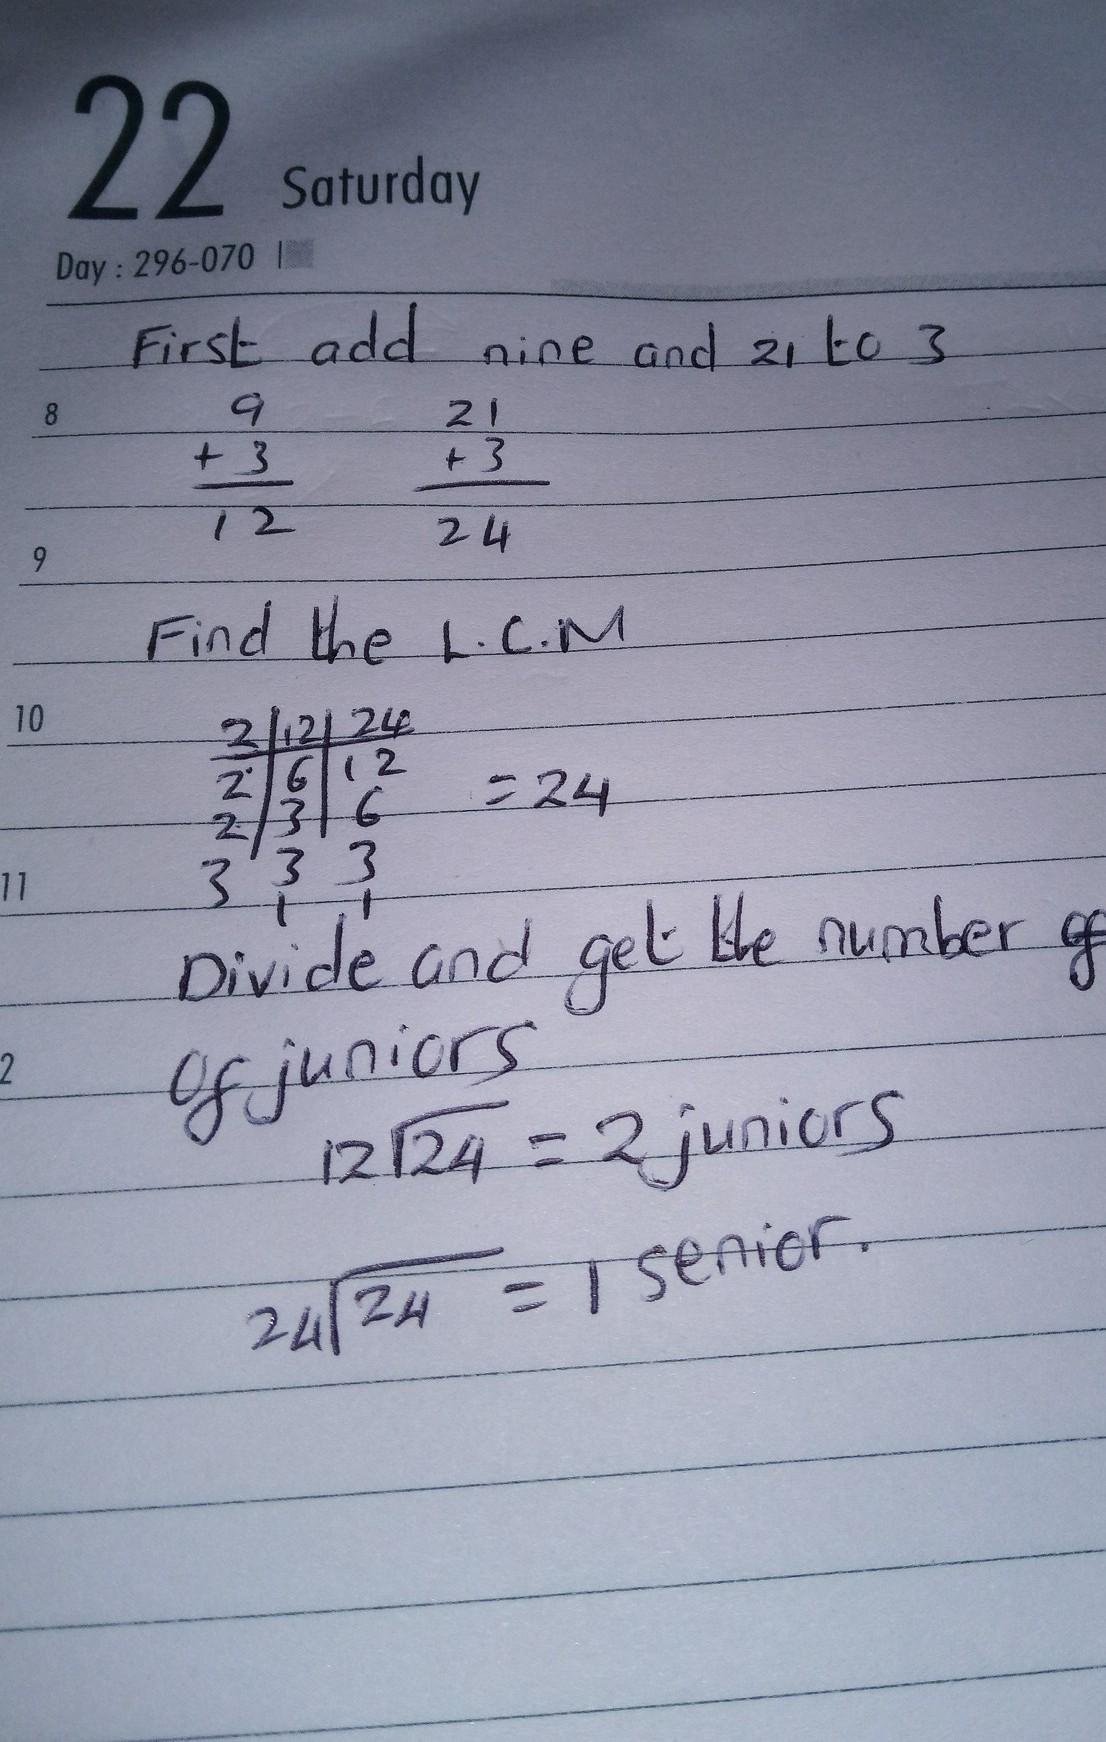 22 Saturday
Day : 296-070 |
First add nine and 21 to 3
8 9 21
+ 3 + 3
12 24
9
Find the L.C.M
10 2 12 24
2 6 12 = 24
2 3 6
11 3 3 3
1 1
Divide and get the number of
2 of juniors
12 24 = 2 juniors
24 24 = 1 senior.